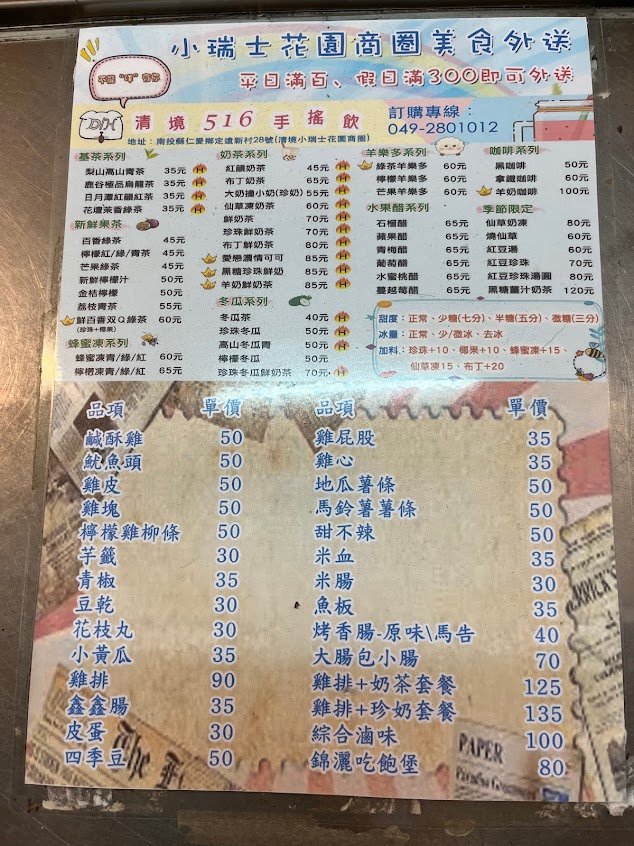 小瑞士花園商圈美食外送
平日滿百、假日滿300即可外送
D/H 清境516手搖飲
訂購專線：
049-2801012
地址：南投縣仁愛鄉定遠新村28號(清境小瑞士花園商圈)
基茶系列
梨山高山青茶 35元
鹿谷極品烏龍茶 35元
日月潭紅韻紅茶 35元
花壇茉香綠茶 35元
新鮮果茶
百香綠茶 45元
檸檬紅/綠/青茶 45元
芒果綠茶 45元
新鮮檸檬汁 50元
金桔檸檬 50元
荔枝青茶 55元
鮮百香双Q綠茶 60元
(珍珠+椰果)
蜂蜜凍系列
蜂蜜凍青/綠/紅 60元
檸檬凍青/綠/紅 65元
奶茶系列
紅韻奶茶 45元
布丁奶茶 65元
大奶撞小奶(珍奶) 55元
仙草凍奶茶 60元
鮮奶茶 70元
珍珠鮮奶茶 70元
布丁鮮奶茶 80元
愛戀濃情可可 85元
黑糖珍珠鮮奶 85元
羊奶鮮奶茶 85元
冬瓜系列
冬瓜茶 40元
珍珠冬瓜 50元
高山冬瓜青 50元
檸檬冬瓜 50元
珍珠冬瓜鮮奶茶 70元
羊樂多系列
綠茶羊樂多 60元
檸檬羊樂多 60元
芒果羊樂多 60元
水果醋系列
石榴醋 65元
蘋果醋 65元
青梅醋 65元
葡萄醋 65元
水蜜桃醋 65元
蔓越莓醋 65元
咖啡系列
黑咖啡 50元
拿鐵咖啡 60元
羊奶咖啡 100元
季節限定
仙草奶凍 80元
燒仙草 60元
紅豆湯 60元
紅豆珍珠 70元
紅豆珍珠湯圓 80元
黑糖薑汁奶茶 120元
甜度：正常、少糖(七分)、半糖(五分)、微糖(三分)
冰量：正常、少/微冰、去冰
加料：珍珠+10、椰果+10、蜂蜜凍+15、
仙草凍15、布丁+20
品項 單價
鹹酥雞 50
魷魚頭 50
雞皮 50
雞塊 50
檸檬雞柳條 50
芋籤 30
青椒 35
豆乾 30
花枝丸 30
小黃瓜 35
雞排 90
鑫鑫腸 35
皮蛋 30
四季豆 50
品項 單價
雞屁股 35
雞心 35
地瓜薯條 50
馬鈴薯薯條 50
甜不辣 50
米血 35
米腸 30
魚板 35
烤香腸-原味\馬告 40
大腸包小腸 70
雞排+奶茶套餐 125
雞排+珍奶套餐 135
綜合滷味 100
錦灑吃飽堡 80
The
PAPER